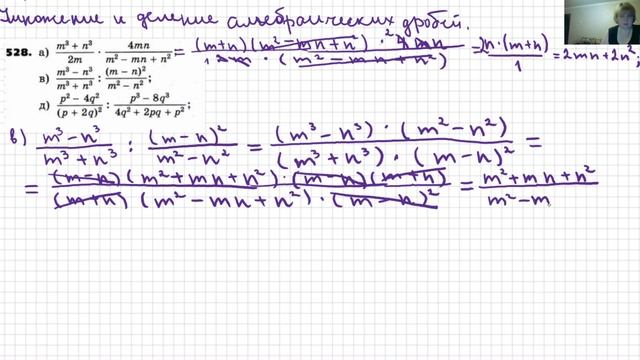 Умножение и деление алгебраических дробей.
528. а) (m³ + n³)/(2m) · (4mn)/(m² − mn + n²) = ((m+n)(m² − mn + n²) · ²4mn)/(1 2m · (m² − mn + n²)) = (2n · (m+n))/1 = 2mn + 2n²;
в) (m³ − n³)/(m³ + n³) : (m − n)²/(m² − n²);
д) (p² − 4q²)/(p + 2q)² : (p³ − 8q³)/(4q² + 2pq + p²);
в) (m³ − n³)/(m³ + n³) : (m − n)²/(m² − n²) = ((m³ − n³) · (m² − n²))/((m³ + n³) · (m − n)²) =
= ((m−n)(m² + mn + n²) · (m − n)(m + n))/((m+n)(m² − mn + n²) · (m − n)²) = (m² + mn + n²)/(m² − m